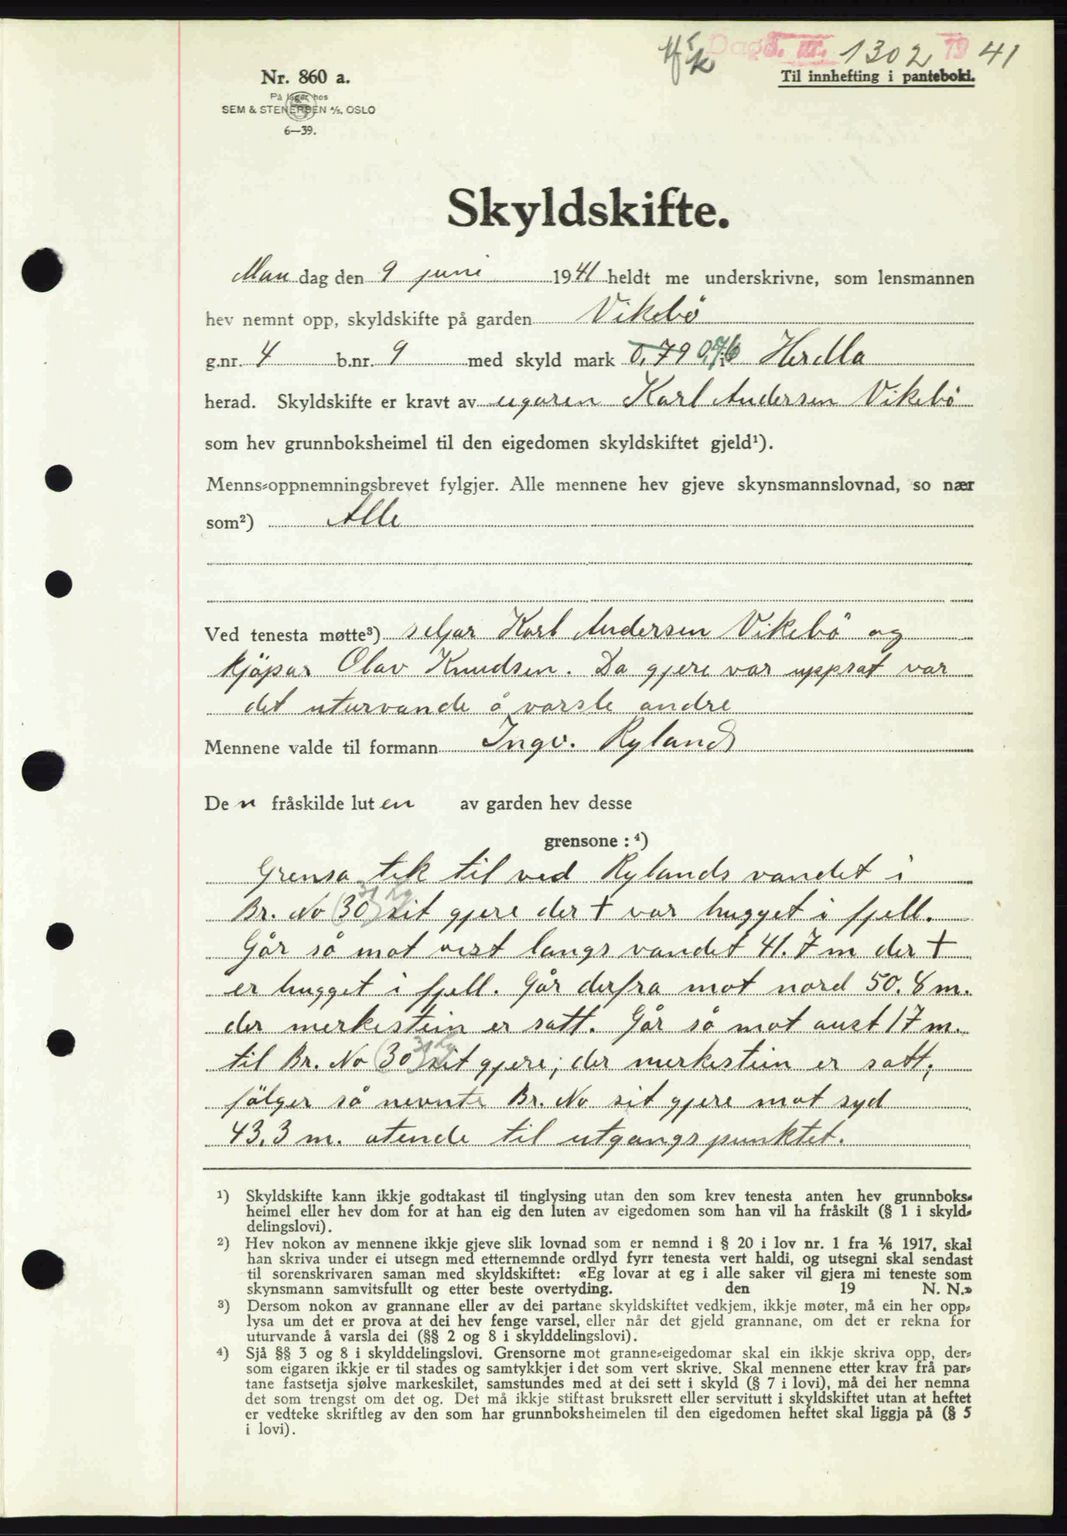 Dagb. nr. 1302 1941
Nr. 860 a.
Til innhefting i pantebok.
På lager hos
SEM & STENERSEN A/S, OSLO
6—39.
Skyldskifte.
Mandag den 9 juni 1941 heldt me underskrivne, som lensmannen
hev nemnt opp, skyldskifte på garden Vikebö
g.nr. 4 b.nr. 9 med skyld mark 0,79 0,76 i Herdla
herad. Skyldskifte er kravt av eigaren Karl Andersen Vikebö
som hev grunnboksheimel til den eigedomen skyldskiftet gjeld¹).
Menns-oppnemningsbrevet fylgjer. Alle mennene hev gjeve skynsmannslovnad, so nær
som²) Alle
Ved tenesta møtte³) seljar Karl Andersen Vikebö og
kjöpar Olav Knudsen. Da gjere var uppsat var
det uturvande å varsle andre
Mennene valde til formann Ingv. Ryland
Den fråskilde luten av garden hev desse
grensone :⁴)
Grensa tek til ved Rylands vandet i
Br. No (30) 31 sit gjere der + var hugget i fjell.
Går så mot vest langs vandet 41.7 m der +
er hugget i fjell. Går derfra mot nord 50.8 m.
der merkestein er satt. Går så mot aust 17 m.
til Br. No (30) 31 sit gjere; der merkestein er satt;
fölger så nevnte Br. No sit gjere mot syd
43.3 m. atende til utgangspunktet.
¹) Skyldskifte kann ikkje godtakast til tinglysing utan den som krev tenesta anten hev grunnboks-
heimel eller hev dom for at han eig den luten av eigedomen som han vil ha fråskilt (§ 1 i skyld-
delingslovi).
²) Hev nokon av mennene ikkje gjeve slik lovnad som er nemnd i § 20 i lov nr. 1 fra 1/6 1917, skal
han skriva under ei utsegn med etternemnde ordlyd fyrr tenesta vert haldi, og utsegni skal sendast
til sorenskrivaren saman med skyldskiftet: «Eg lovar at eg i alle saker vil gjera mi teneste som
skynsmann samvitsfullt og etter beste overtyding. den 19 N. N.»
³) Dersom nokon av grannane eller av dei partane skyldskiftet vedkjem, ikkje møter, må ein her opp-
lysa um det er prova at dei hev fenge varsel, eller når det gjeld grannane, om det er rekna for
uturvande å varsla dei (§§ 2 og 8 i skylddelingslovi).
⁴) Sjå §§ 3 og 8 i skylddelingslovi. Grensorne mot granne-eigedomar skal ein ikkje skriva opp, der-
som eigaren ikkje er til stades og samtykkjer i det som vert skrive. Skal mennene etter krav frå par-
tane fastsetja sjølve markeskilet, samstundes med at dei sett i skyld (§ 7 i lovi), må dei her nemna
det som trengst om det og. Det må ikkje stiftast bruksrett eller servitutt i skyldskiftet utan at heftet
er vedteke skriftleg av den som har grunnboksheimelen til den eigedomen heftet skal liggja på (§ 5
i lovi).